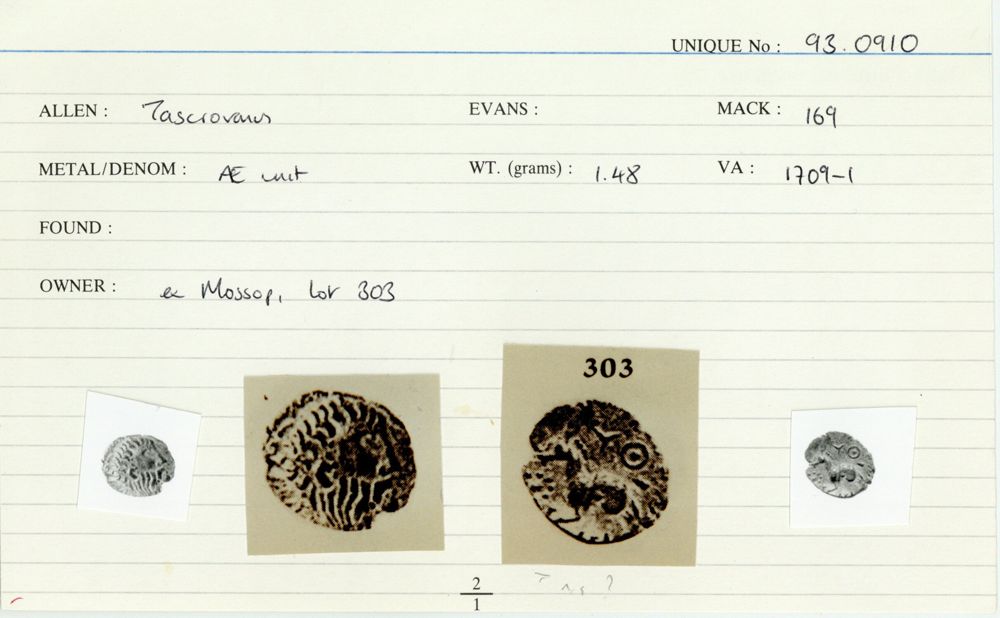 UNIQUE No : 93.0910
ALLEN : Tasciovanus EVANS : MACK : 169
METAL/DENOM : Æ unit WT. (grams) : 1.48 VA : 1709-1
FOUND :
OWNER : ex Mossop, Lot 303
303
2
1